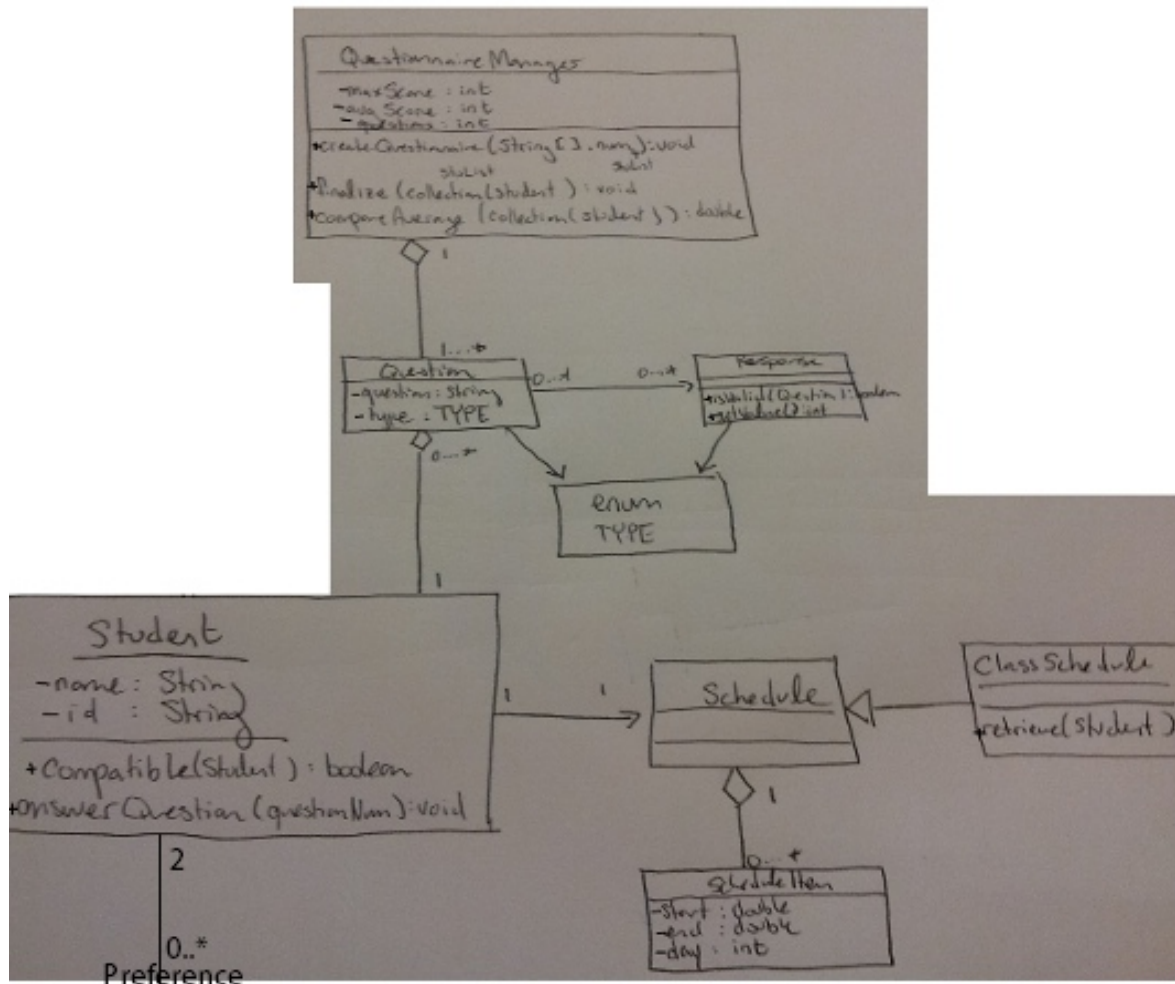 QuestionnaireManager
-maxScore : int
-avg Score : int
-questions : int
+createQuestionnaire(String[], num):void
stuList
stuList
+finalize (collection(student) : void
+compareAverage (collection(student)) : double
1
1...*
Question
-question: String
-type : TYPE
0...*
0...*
Response
+isValid(Question):boolean
+getValue():int
0...*
enum
TYPE
1
Student
-name: String
-id : String
+Compatible(Student): boolean
+answerQuestion(questionNum):void
1
1
Schedule
ClassSchedule
+retrieve(Student)
1
0...*
ScheduleItem
-start : double
-end : double
-day : int
2
0..*
Preference